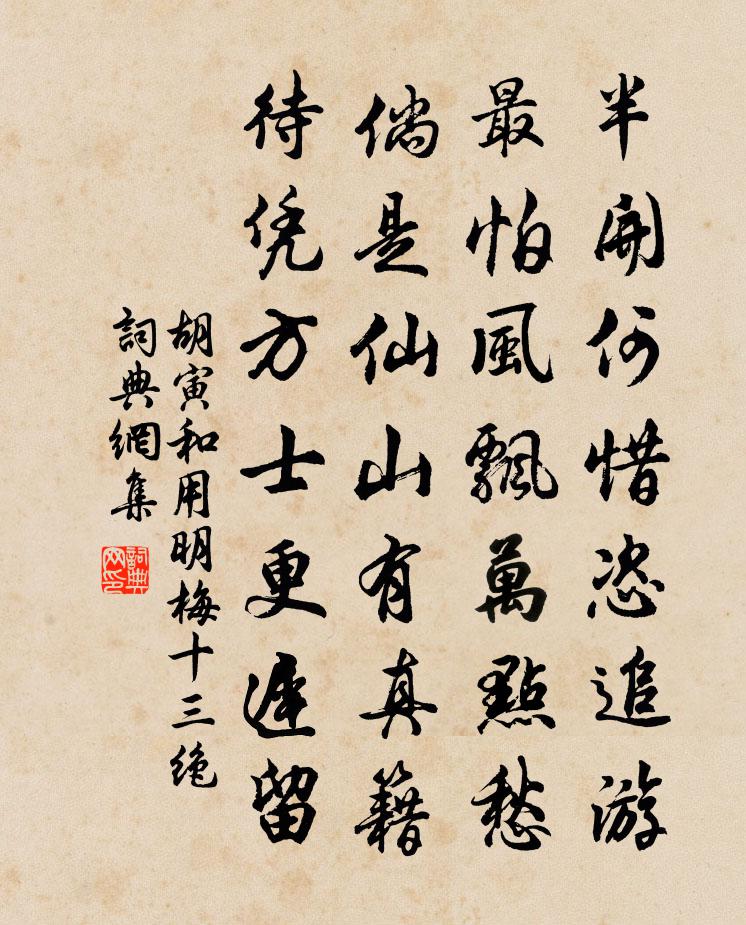 半開何惜恣追游
最怕風飄萬點愁
倘是仙山有真籍
待凭方士更遲留
胡寅和用明梅十三絶
詞典網集
詞典网印